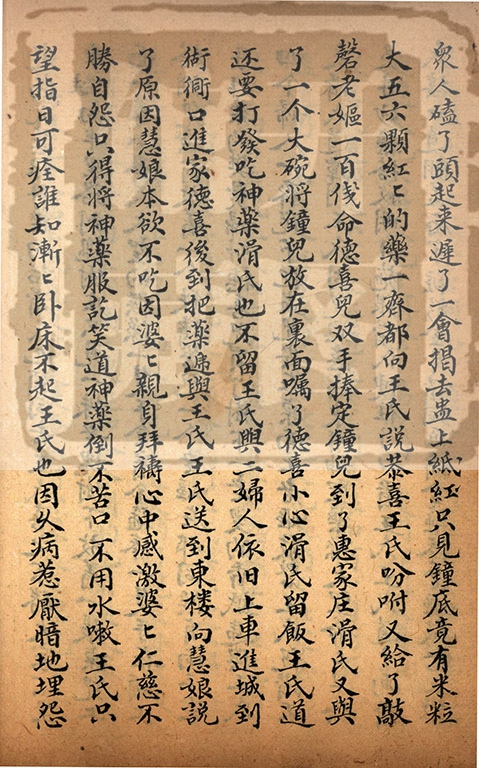 衆人磕了頭起来遲了一會揭去盅上紙紅只見鐘底竟有米粒
大五六顆紅〻的藥一齊都向王氏說恭喜王氏吩咐又給了敲
磬老嫗一百伐命德喜兒双手捧定鐘兒到了惠家庄滑氏又與
了一个大碗將鐘兒放在裏面嘱了德喜小心滑氏留飯王氏道
还要打發吃神藥滑氏也不留王氏與二婦人依旧上車進城到
衚衕口進家德喜後到把藥遞與王氏王氏送到東楼向慧娘說
了原因慧娘本欲不吃因婆〻親身拜禱心中感激婆〻仁慈不
勝自怨只得將神藥服訖笑道神藥倒不苦口不用水嗽王氏只
望指日可痊誰知漸〻卧床不起王氏也因久病惹厭暗地埋怨